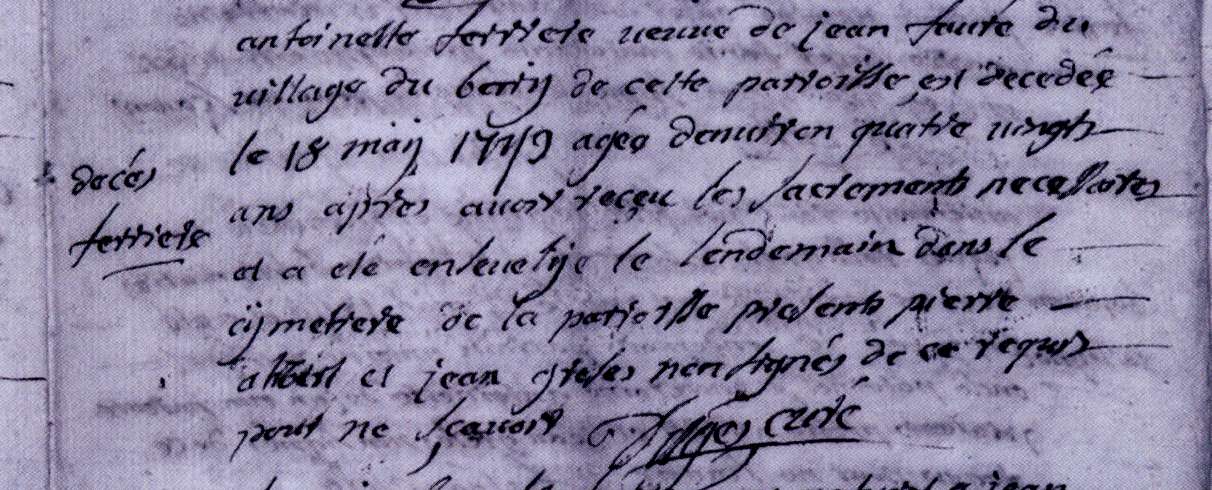 antoinette ferriere veuve de jean faure du
village du bariy de cette parroisse est decedée
le 18 maij 1779 agée denviron quatre vingts
decés
ferriere
ans apres avoir reçeu les sacrements necessaires
et a eté ensevelije le lendemain dans le
cijmetiere de la parroisse presents pierre
et jean non signés de ce requis
pour ne sçavoir curé